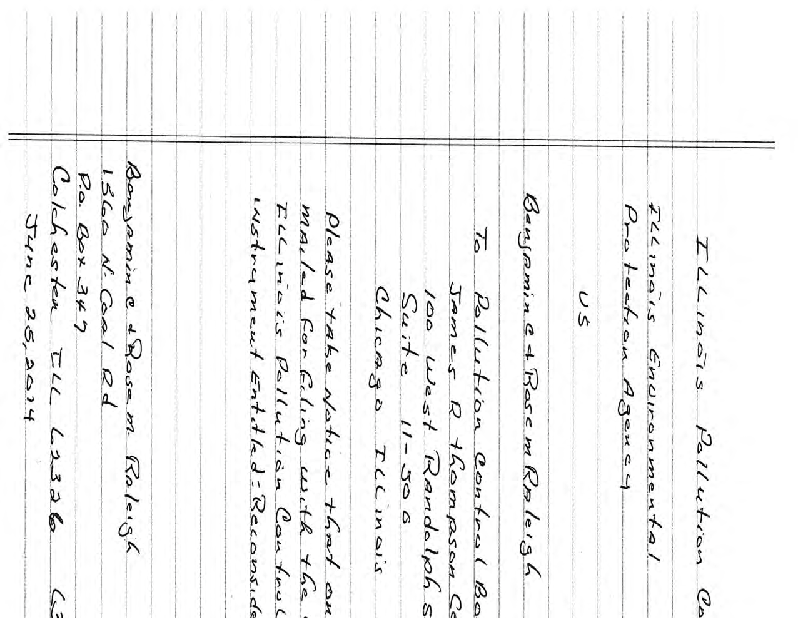 Illinois Pollution Co
Illinois Environmental
Protection Agency
US
Benjamin C & Rose m Raleigh
To Pollution Control Bo
James R Thompson Ce
100 West Randolph S
Suite 11-500
Chicago Illinois
Please take Notice that on
mailed for Filing with the
Illinois Pollution Control
instrument Entitled: Reconside
Benjamin C & Rose m Raleigh
1560 N. Coal Rd
P.O. Box 347
Colchester ILL 62326
June 25, 2014